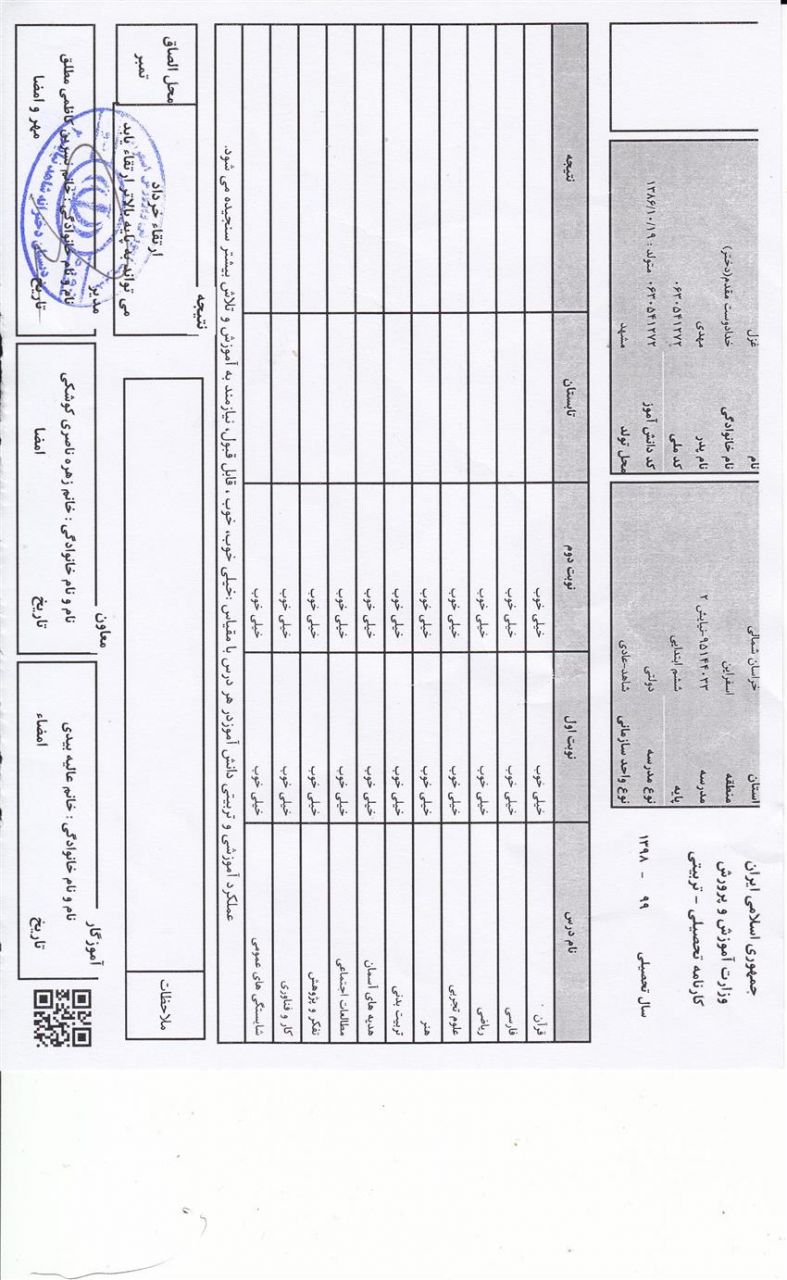 جمهوری اسلامی ایران
وزارت آموزش و پرورش
کارنامه تحصیلی - تربیتی
سال تحصیلی ۹۹ - ۱۳۹۸
استان خراسان شمالی
منطقه اسفراین
مدرسه ۹۵۱۴۴۰۳۳-نیایش ۲
پایه ششم ابتدایی
نوع مدرسه دولتی
نوع واحد سازمانی شاهد-عادی
نام غزل
نام خانوادگی خدادوست مقدم(دختر)
نام پدر مهدی
کد ملی ۰۶۳۰۵۴۱۲۷۲
کد دانش آموز ۰۶۳۰۵۴۱۲۷۲ متولد : ۱۳۸۶/۱۰/۱۹
محل تولد مشهد
نام درس نوبت اول نوبت دوم تابستان نتیجه
قرآن خیلی خوب خیلی خوب
فارسی خیلی خوب خیلی خوب
ریاضی خیلی خوب خیلی خوب
علوم تجربی خیلی خوب خیلی خوب
هنر خیلی خوب خیلی خوب
تربیت بدنی خیلی خوب خیلی خوب
هدیه های آسمان خیلی خوب خیلی خوب
مطالعات اجتماعی خیلی خوب خیلی خوب
تفکر و پژوهش خیلی خوب خیلی خوب
کار و فناوری خیلی خوب خیلی خوب
شایستگی های عمومی خیلی خوب خیلی خوب
عملکرد آموزشی و تربیتی دانش آموزدر هر درس با مقیاس :خیلی خوب، خوب ، قابل قبول، نیازمند به آموزش و تلاش بیشتر سنجیده می شود.
ملاحظات
نتیجه
ارتقاء خرداد
می تواند به پایه بالاتر ارتقاء یابد
محل الصاق
تمبر
آموزگار
نام و نام خانوادگی : خانم عالیه بیدی
تاریخ امضاء
معاون
نام و نام خانوادگی : خانم زهره ناصری کوشکی
تاریخ امضا
مدیر
نام و نام خانوادگی : خانم نسرین کاظمی مطلق
تاریخ مهر و امضا